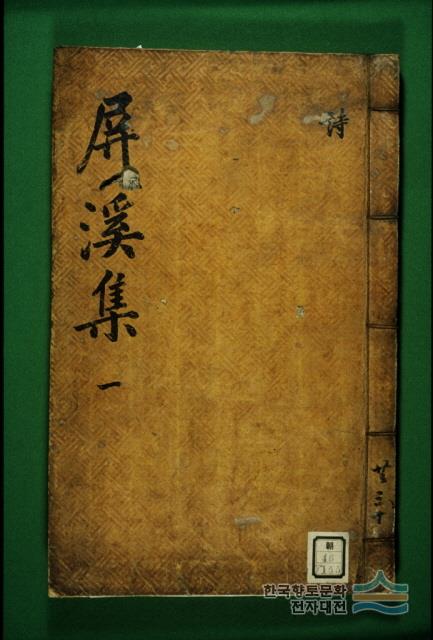 屛溪集
一
詩
共三十
朝
46
한국향토문화
전자대전